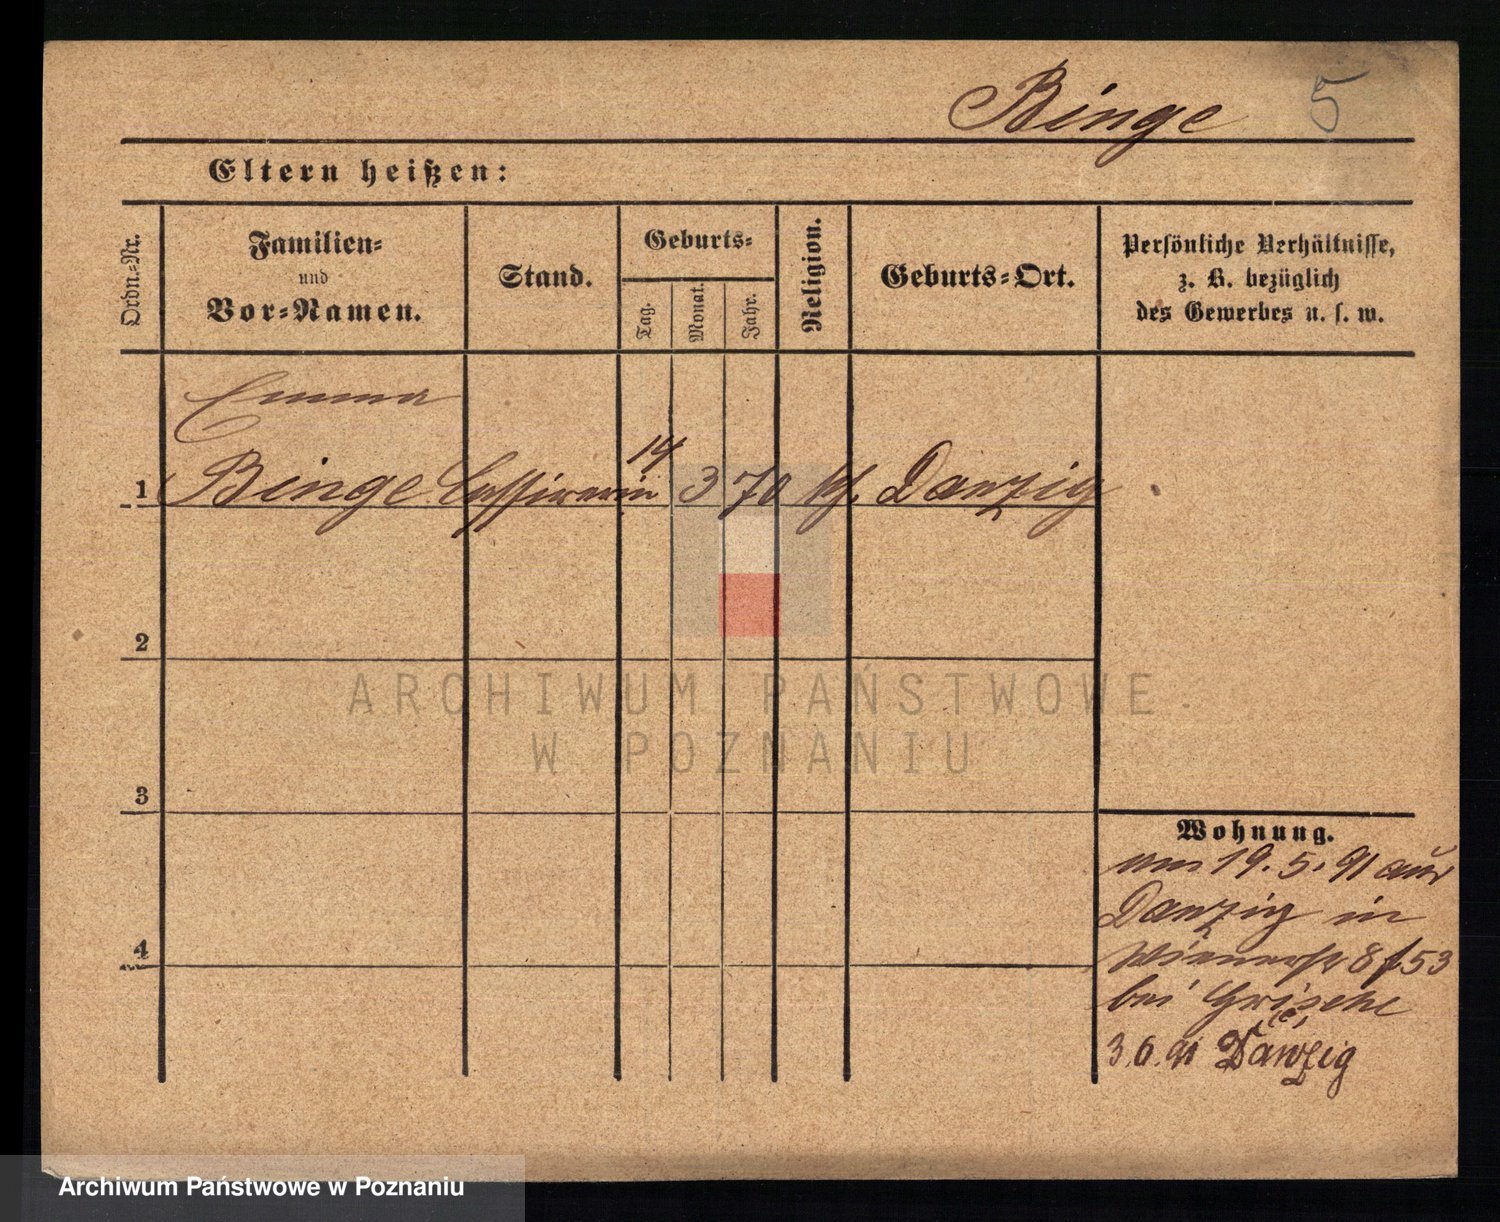 Binge 5
Eltern heißen:
Ordn.-Nr.
Familien-
und
Vor-Namen.
Stand.
Geburts-
Tag.
Monat.
Jahr.
Religion.
Geburts-Ort.
Persönliche Verhältnisse,
z. B. bezüglich
des Gewerbes u. s. w.
Emma
1 Binge Cassirerin 14 3 70 Danzig
2
3
4
Wohnung.
am 19. 5. 91 aus
Danzig in
Wienerstr 8 53
bei Grische
3.6.91 Danzig
ARCHIWUM PAŃSTWOWE
W POZNANIU
Archiwum Państwowe w Poznaniu